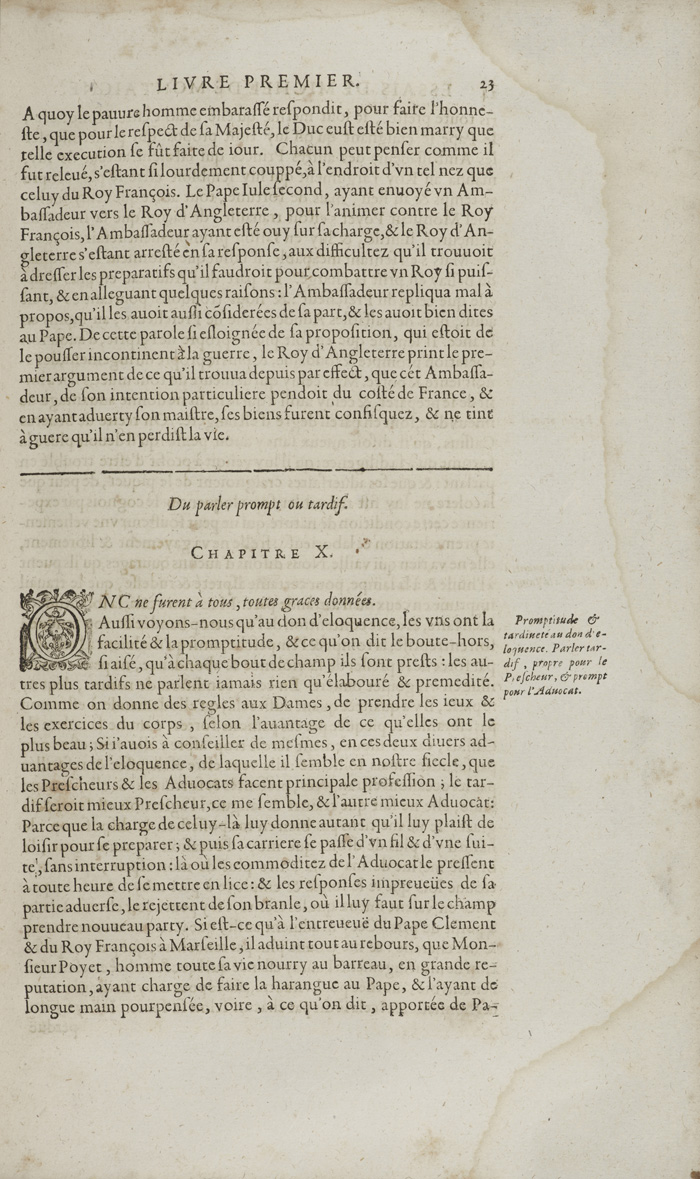 LIVRE PREMIER. 23
A quoy le pauure homme embarassé respondit, pour faire l'honne-
ste, que pour le respect de sa Majesté, le Duc eust esté bien marry que
telle execution se fût faite de iour. Chacun peut penser comme il
fut releué, s'estant si lourdement couppé, à l'endroit d'vn tel nez que
celuy du Roy François. Le Pape Iule second, ayant enuoyé vn Am-
bassadeur vers le Roy d'Angleterre, pour l'animer contre le Roy
François, l'Ambassadeur ayant esté ouy sur sa charge, & le Roy d'An-
gleterre s'estant arresté en sa response, aux difficultez qu'il trouuoit
à dresser les preparatifs qu'il faudroit pour combattre vn Roy si puis-
sant, & en alleguant quelques raisons: l'Ambassadeur repliqua mal à
propos, qu'il les auoit aussi cõsiderées de sa part, & les auoit bien dites
au Pape. De cette parole si esloignée de sa proposition, qui estoit de
le pousser incontinent à la guerre, le Roy d'Angleterre print le pre-
mier argument de ce qu'il trouua depuis par effect, que cét Ambassa-
deur, de son intention particuliere pendoit du costé de France, &
en ayant aduerty son maistre, ses biens furent confisquez, & ne tint
à guere qu'il n'en perdist la vie.
Du parler prompt ou tardif.
CHAPITRE X.
ONC ne furent à tous, toutes graces données.
Aussi voyons-nous qu'au don d'eloquence, les vns ont la
facilité & la promptitude, & ce qu'on dit le boute-hors,
si aisé, qu'à chaque bout de champ ils sont prests: les au-
tres plus tardifs ne parlent iamais rien qu'élabouré & premedité.
Comme on donne des regles aux Dames, de prendre les ieux &
les exercices du corps, selon l'auantage de ce qu'elles ont le
plus beau; Si i'auois à conseiller de mesmes, en ces deux diuers ad-
uantages de l'eloquence, de laquelle il semble en nostre siecle, que
les Prescheurs & les Aduocats facent principale profession; le tar-
dif seroit mieux Prescheur, ce me semble, & l'autre mieux Aduocat:
Parce que la charge de celuy-là luy donne autant qu'il luy plaist de
loisir pour se preparer; & puis sa carriere se passe d'vn fil & d'vne sui-
te, sans interruption: là où les commoditez de l'Aduocat le pressent
à toute heure de se mettre en lice: & les responses impreueües de sa
partie aduerse, le rejettent de son branle, où il luy faut sur le champ
prendre nouueau party. Si est-ce qu'à l'entreueuë du Pape Clement
& du Roy François à Marseille, il aduint tout au rebours, que Mon-
sieur Poyet, homme toute sa vie nourry au barreau, en grande re-
putation, ayant charge de faire la harangue au Pape, & l'ayant de
longue main pourpensée, voire, à ce qu'on dit, apportée de Pa-
Promptitude &
tardiueté au don d'e-
loquence. Parler tar-
dif, propre pour le
Prescheur, & prompt
pour l'Aduocat.